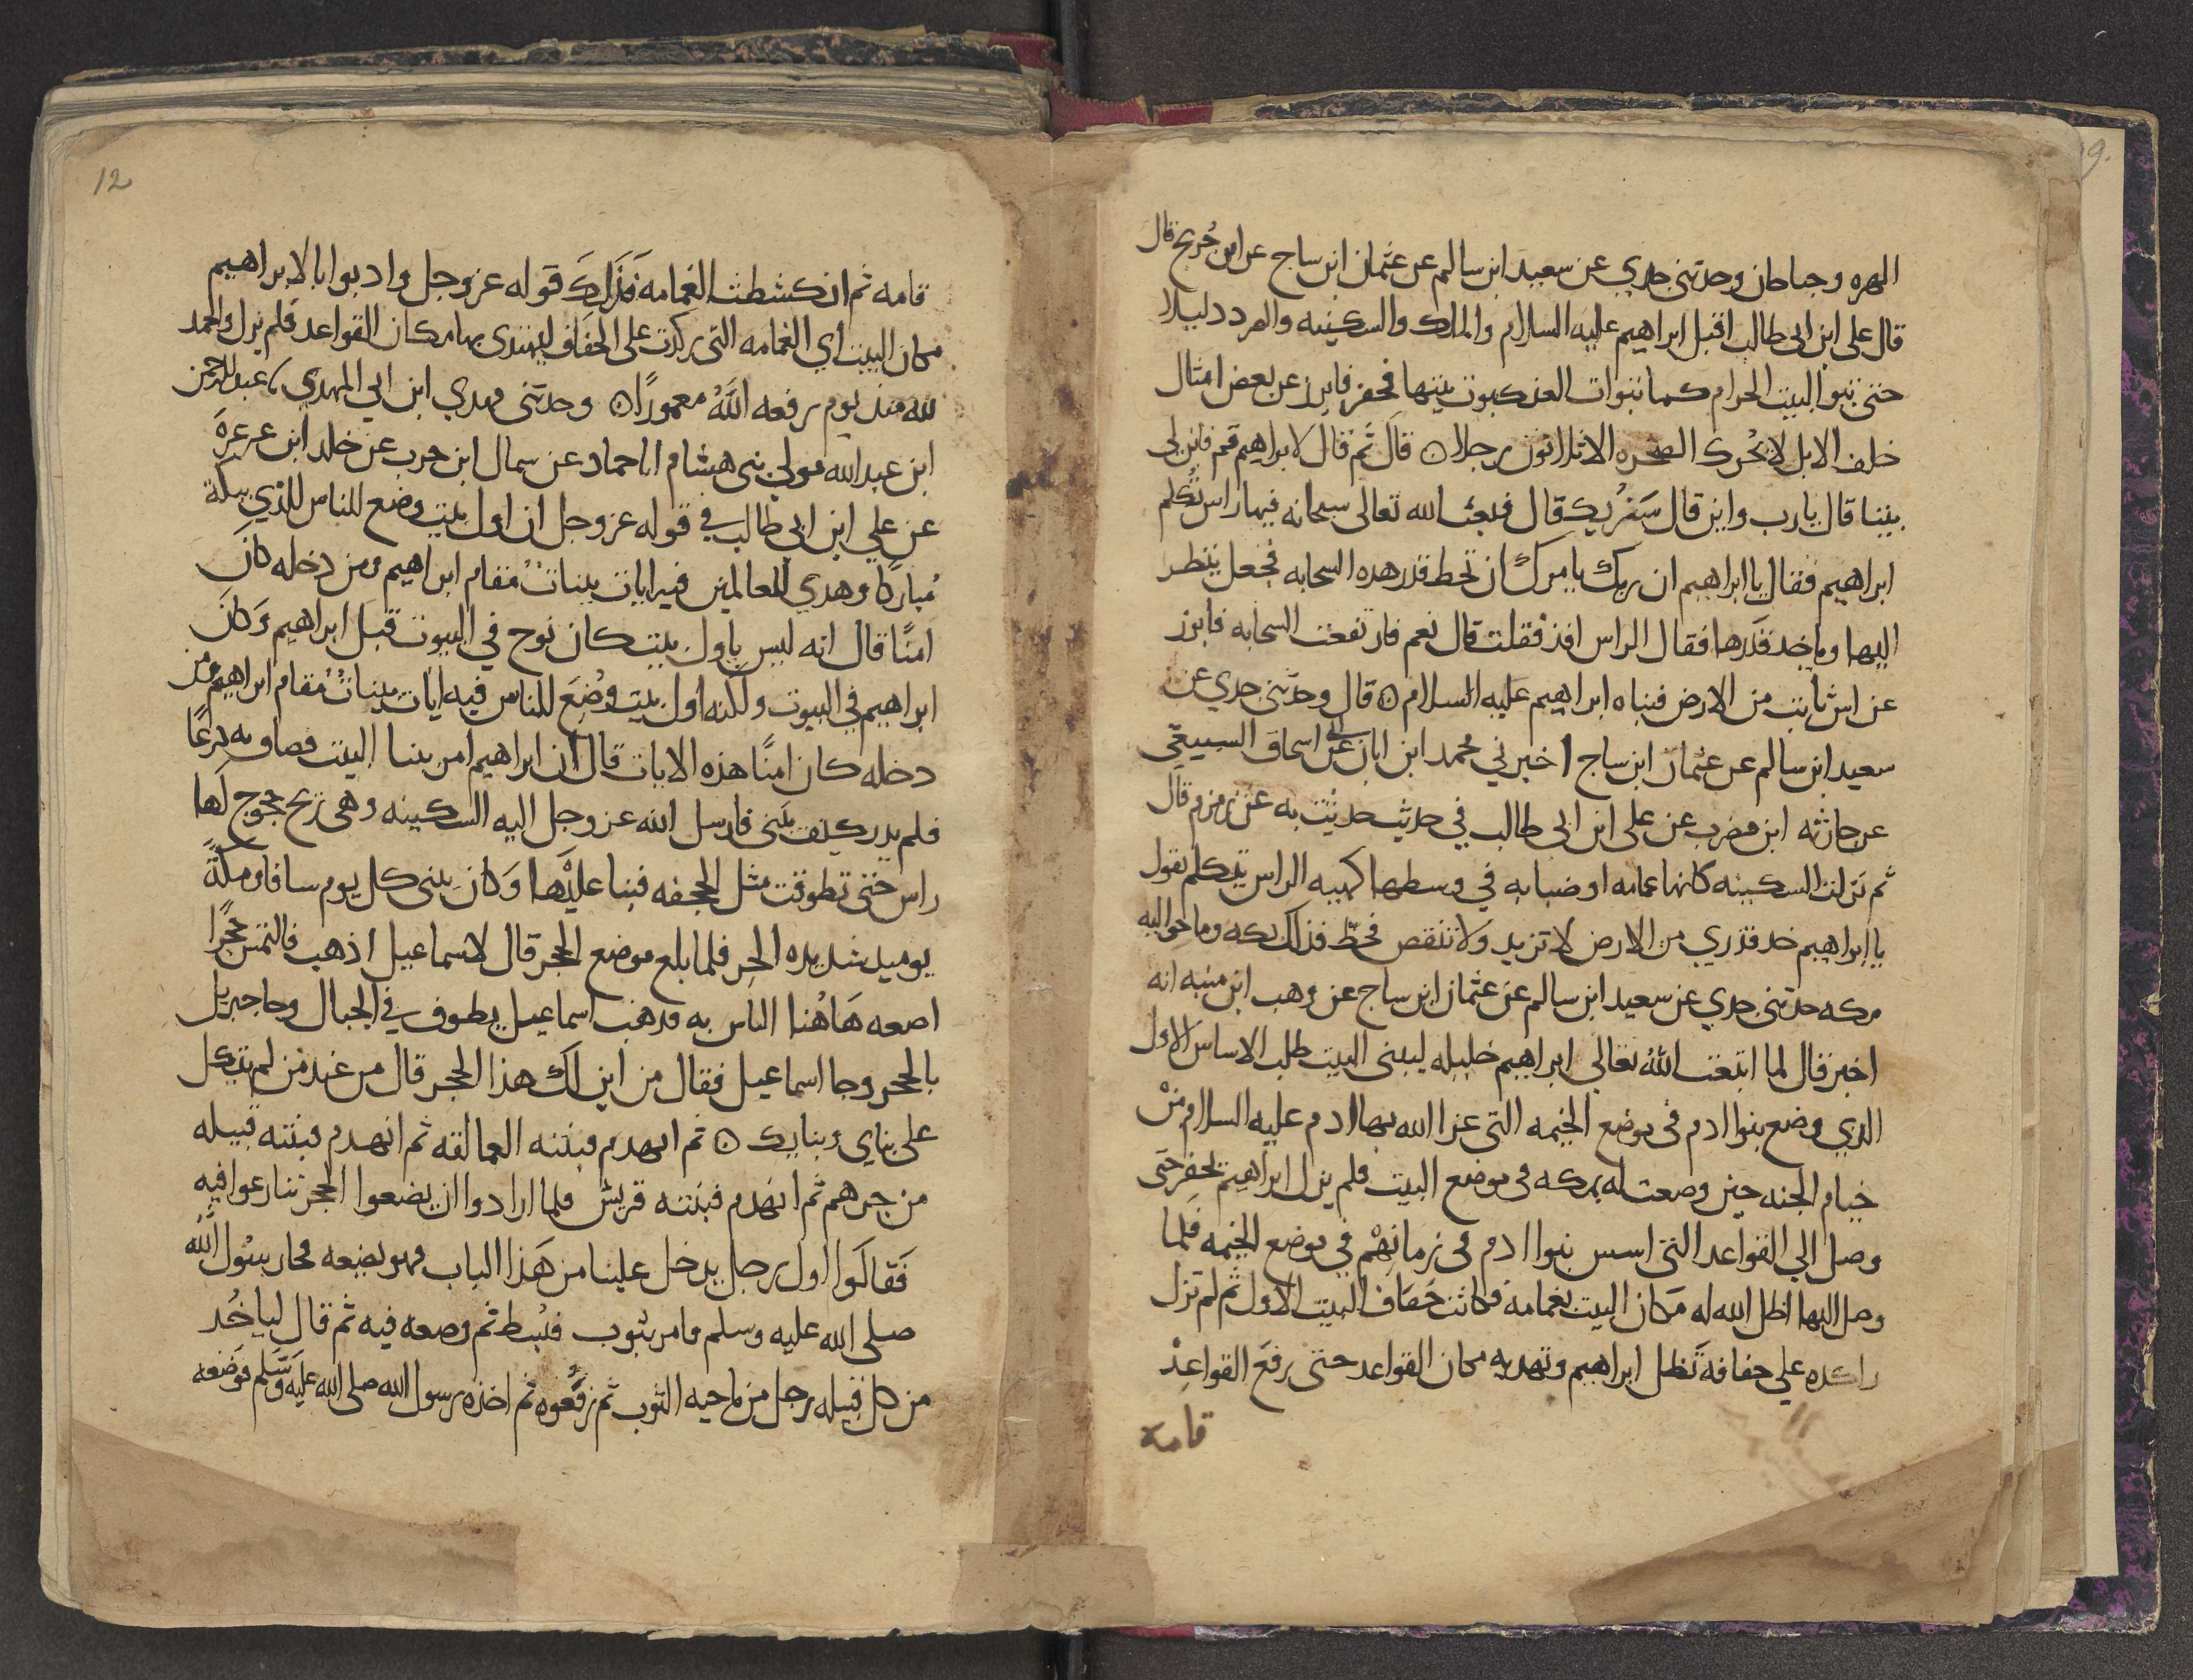 الهره وجناحان وحدثني جدي عن سعيد ابن سالم عن عثمان ابن ساج عن ابن جُريج قال
قال علي ابن ابي طالب اقبل ابراهيم عليه السلام والملك والسكينه والصرد دليلا
حتي تبوا البيت الحرام كما تبوات العنكبوت بيتها فحفر فابرز عن بعض امثال
خلف الابل لا تحرك الصخره الا ثلاثون رجلا ۞ قال ثم قال لابراهيم قم فابن لي
بيتنا قال يارب واين قال سَنُريك قال فبعث الله تعالى سحابه فيها راس تكلم
ابراهيم فقال يا ابراهيم ان ربك يامرك ان تخط قدر هذه السحابه فجعل ينظر
اليها وياخذ قدرها فقال الراس اقد فعلت قال نعم فارتفعت السحابه فابرز
عن اس ثابت من الارض فبناه ابراهيم عليه السلام ۞ قال وحدثني جدي عن
سعيد ابن سالم عن عثمان ابن ساج اخبرني محمد ابن ابان عن ابي اسحاق السبيعي
عن حارثه ابن مضرب عن علي ابن ابي طالب في حديث حدثت به عن زمزم قال
ثم نزلت السكينه كانها غمامه او ضبابه في وسطها كهيه الراس يتكلم يقول
يا ابراهيم خد قدري من الارض لا تزيد ولا تنقص فخط فذلك بكه وما حواليه
مكه حدثني جدي عن سعيد ابن سالم عن عثمان ابن ساج عن وهب ابن منبه انه
اخبر قال لما ابتعث الله تعالي ابراهيم خليله ليبني البيت طلب الاساس الاول
الذي وضع بنوا ادم في موضع الخيمه التي عزا الله بها ادم عليه السلام منْ
خيام الجنه حين وضعت له بمكه في موضع البيت فلم يزل ابراهيم يحفر حتي
وصل الي القواعد التي اسس بنوا ادم في زمانهْم في موضع الخيمه فلما
وصل اليها اظل الله له مكان البيت بغمامه فكانت حفاف البيت الاول ثم لم تزل
راكده علي حفافه تظل ابراهيم وتهديه مكان القواعد حتي رفع القواعدْ
قامة
12
قامه ثم انكشطت الغمامه فذلك قوله عز وجل واذ بوانا لابراهيم
مكان البيت اي الغمامه التي ركدت علي الحفاف ليهتدي بها مكان القواعد فلم يزل والحمد
لله منذ يوم رفعه اللهُ معمورًا ۞ وحدثني مهدي ابن ابي المهدي عبد الرحمن
ابن عبد الله مولي بني هشام انا حماد عن سمال ابن حرب عن خلد ابن عرعرَه
عن علي ابن ابي طالب في قوله عز وجل ان اول بيت وضع للناس للذي ببكة
مُباركا وهدي للعالمين فيه ايات بينات مقام ابراهيم ومن دخله كانَ
امنًا قال انه ليس باول بيت كان نوح في البيوت قبل ابراهيم وَكانَ
ابراهيم في البيوت ولكنه اول بيت وُضِعَ للناس فيه ايات بيناتٌ مقام ابراهيم ومن
دخله كان امنًا هذه الايات قال ان ابراهيم امر ببنا البيت فضاق به ذرعًا
فلم يدر كيف يبني فارسل الله عز وجل اليه السكينه وهي ريح خجوج لها
راس حتي تطوقت مثل الحجفه فبنا عليْها وَكان يبني كل يوم سافا ومكةً
يوميد شديده الحر فلما بلغ موضع الحجر قال لاسماعيل اذهب فالتمس حجرًا
اضعه هَاهُنا الناس به فدهب اسماعيل يطوف في الجبال وجا جبريل
بالحجر وجا اسماعيل فقال من اين لك هذا الحجر قال من عند من لم يتكل
علي بناي وبنايك ۞ ثم انهدم فبنته العمالقه ثم انهدم فبنته قبيله
من جرهم ثم انهدم فبنته قريش فلما ارادوا ان يضعوا الحجر تنازعوا فيه
فَقالَوا اول رجل يدخل علينا من هَذا الباب فهو يضعه فجا رسُول الله
صلي الله عليه وسلم فامر بثوب فبُسط ثم وضعه فيه ثم قال لياخُد
من كل قبيله رجل من ناحيه الثوب ثم رفعُوه ثم اخذه رسول الله صلي الله عليه وسَلم فوضعه